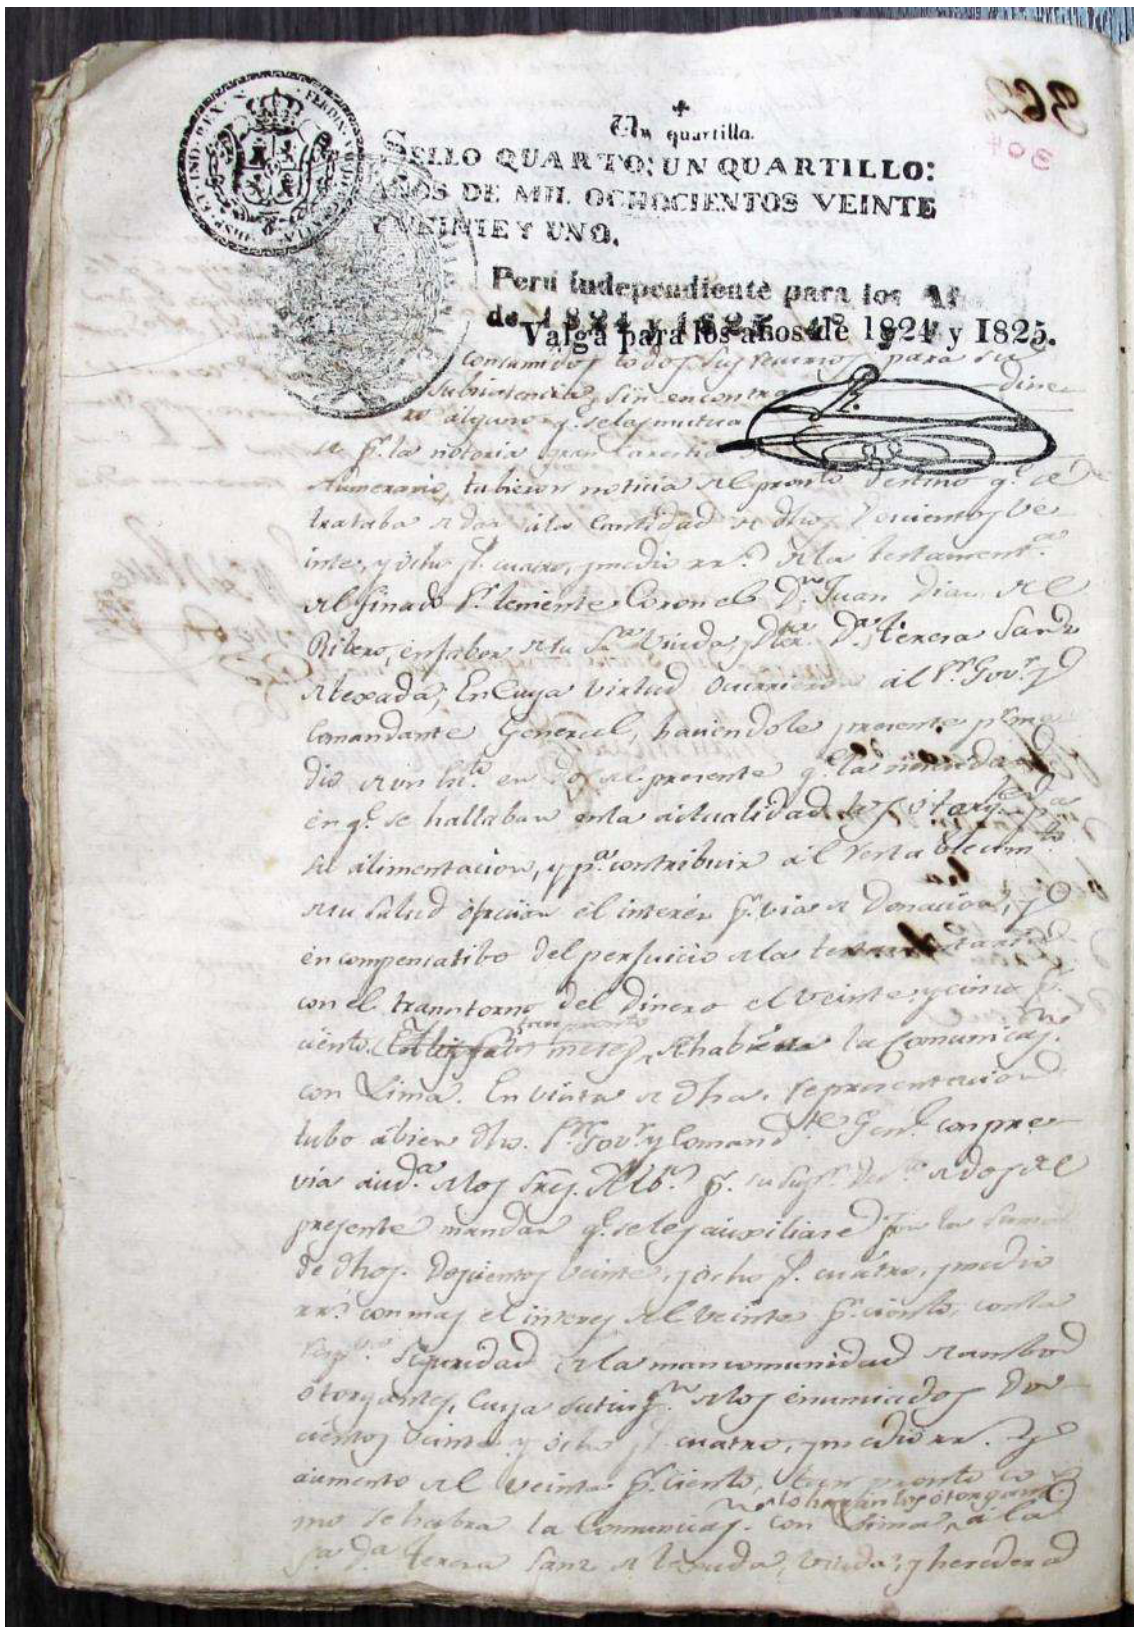 HISP. ET IND. REX FERDIN. VII D. G.
Un quartillo.
SELLO QUARTO: UN QUARTILLO:
AÑOS DE MIL OCHOCIENTOS VEINTE
Y VEINTE Y UNO.
Perú independiente para los Añ
de 1824 y 1825
Valga para los años de 1824 y 1825.
consumidos todos sus para su
subsistencia, sin encontra dine
ro alguno q.e se las
p.r la notoria gran carestia
numerario, tubieron noticia del pronto destino q.e se
trataba de dar á la Cantidad de dhos Docientos ve
inte, y ocho p.s cuatro, y medio rr.s de la testament.a
del finado S.r teniente Coronel D.n Juan Dias del
Ribero, en fabor de su S.ra Viuda, D.a Teresa Sanz
de texada; En Cuya virtud ocurrieron al S.r Gov.r y
Comandante General, haciendole presente p.r me
dio de un en del presente q.e la necesidad
en q.e se hallaban en la actualidad los otorg.tes p.a
su alimentacion, y p.a contribuir al restablecim.to
de su salud el interes p.r via de Donacion, y
en compensatibo del perjuicio de la testamentaria
con el transtorno del Dinero el veinte y cinco p.r
ciento. meses tan pronto se habra la Comunicaz.n
con Lima. En vista de dha. representacion
tubo ábien dho. S.r Gov.r y Comand.te Gen.l con pre
via aud.a de los Sres. Alb.s p.r su de dos del
presente mandar q.e se les auxiliase con la suma
de dhos. Docientos veinte, y ocho p.s cuatro, y medio
rr.s con mas el interes del veinte p.r ciento, con la
seguridad de la mancomunidad de ambos
otorgantes, Cuya de los enunciados Do
cientos veinte y ocho p.s cuatro, y medio rr.s y
aumento del veinte p.r ciento, tan pronto co
lo harán los otorgant.s
mo se habra la Comunicaz.n con Lima, á la
S.a D.a Teresa Sanz de texada, viuda, y heredera